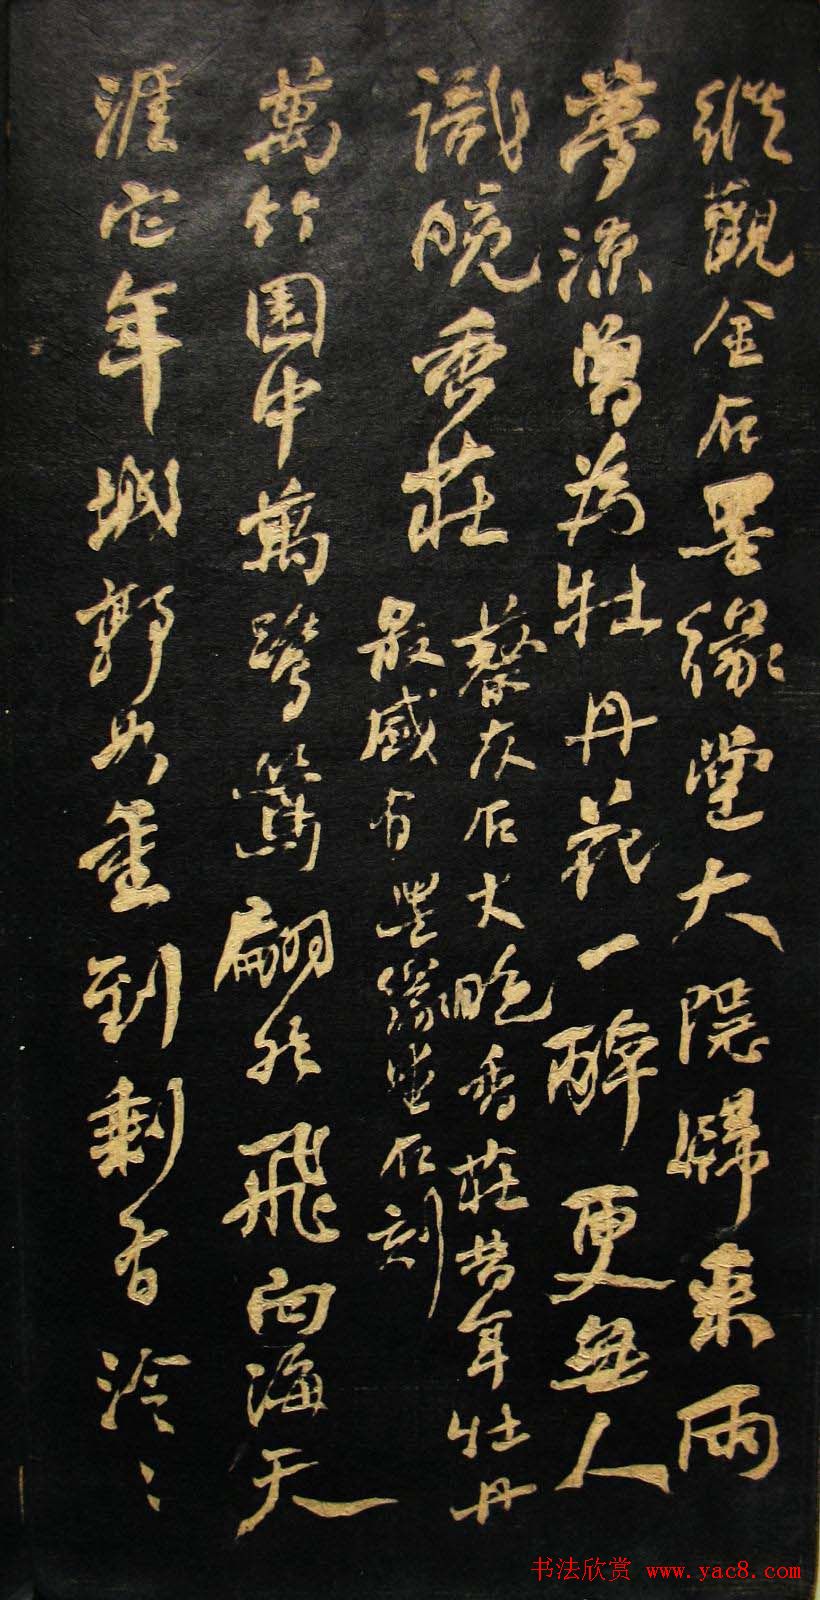 縱觀金石墨緣堂大隱歸來兩
夢涼曾為牡丹花一醉更無人
識晚香莊
蔡友石 晚香莊昔年牡丹
最盛有墨緣堂石刻
萬竹園中萬鷺鷥翩然飛向海天
涯它年城郭如重到剩有泠〻
书法欣赏 www.yac8.com